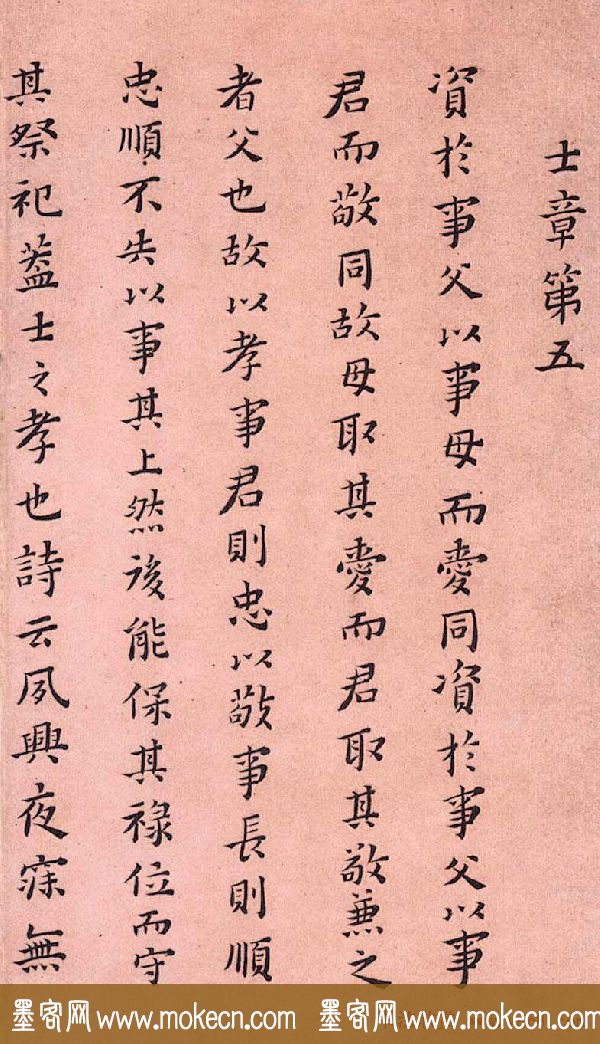 士章第五
資於事父以事母而愛同資於事父以事
君而敬同故母取其愛而君取其敬兼之
者父也故以孝事君則忠以敬事長則順
忠順不失以事其上然後能保其祿位而守
其祭祀蓋士之孝也詩云夙興夜寐無
墨客网 www.mokecn.com 墨客网 www.mokecn.com